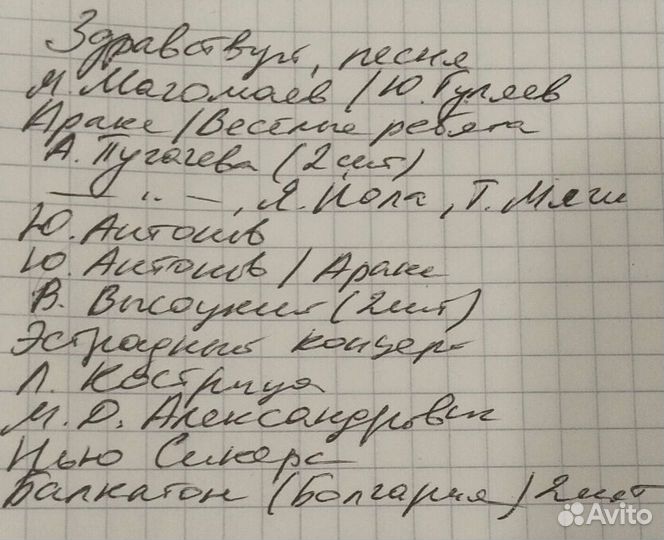 Здравствуй, песня
М. Магомаев / Ю. Гуляев
Аракс / Весёлые ребята
А. Пугачева (2 шт)
— " —, Я. Йола, Т. Мяги
Ю. Антонов
Ю. Антонов / Аракс
В. Высоцкий (2 шт)
Эстрадный концерт
Л. Кострица
М. Д. Александрович
Нью Сикерс
Балкатон (Болгария) 2 шт
Avito